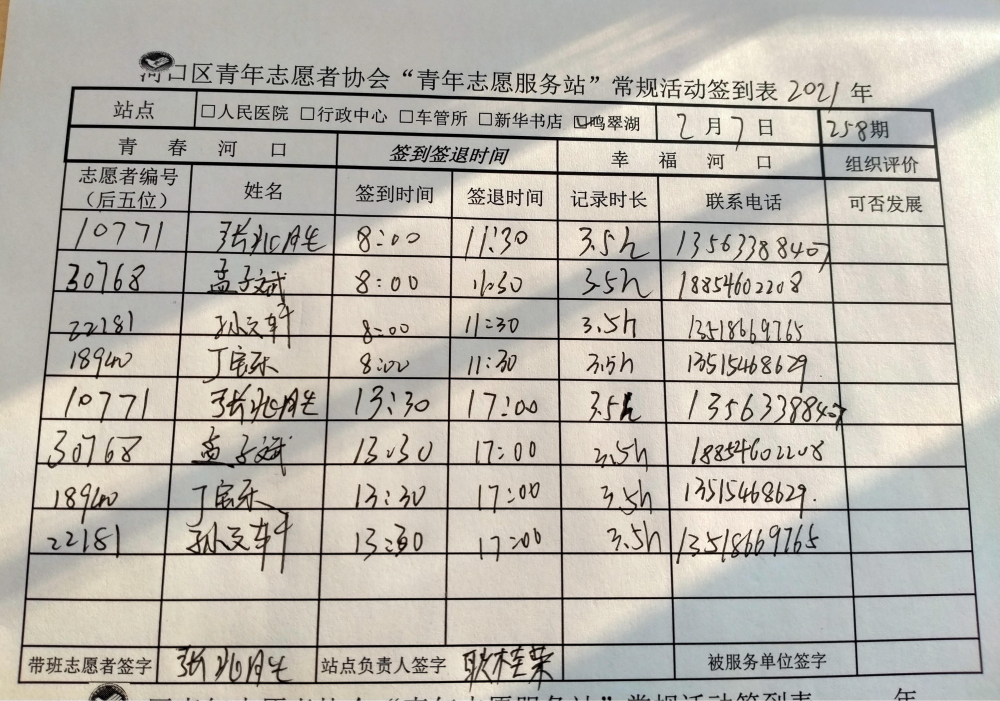 河口区青年志愿者协会“青年志愿服务站”常规活动签到表 2021 年
站点 □人民医院 □行政中心 □车管所 □新华书店 ☑鸣翠湖 2月7日 258期
青春河口 签到签退时间 幸福河口 组织评价
志愿者编号（后五位） 姓名 签到时间 签退时间 记录时长 联系电话 可否发展
10771 张兆胜 8:00 11:30 3.5h 13563388407
30768 孟子斌 8:00 11:30 3.5h 18854602208
22181 孙文轩 8:00 11:30 3.5h 13518669765
18940 丁宝乐 8:00 11:30 3.5h 13515468629
10771 张兆胜 13:30 17:00 3.5h 13563388407
30768 孟子斌 13:30 17:00 3.5h 18854602208
18940 丁宝乐 13:30 17:00 3.5h 13515468629.
22181 孙文轩 13:30 17:00 3.5h 13518669765
带班志愿者签字 张兆胜 站点负责人签字 耿桂荣 被服务单位签字